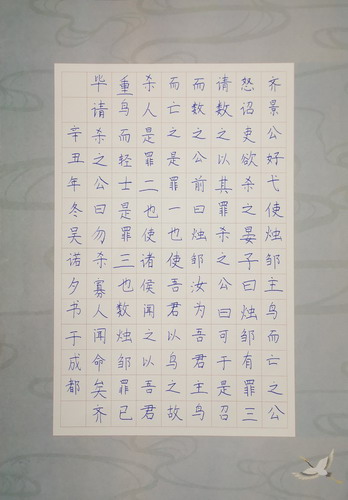 齐景公好弋使烛邹主鸟而亡之公
怒诏吏欲杀之晏子曰烛邹有罪三
请数之以其罪杀之公曰可于是召
而数之公前曰烛邹汝为吾君主鸟
而亡之是罪一也使吾君以鸟之故
杀人是罪二也使诸侯闻之以吾君
重鸟而轻士是罪三也数烛邹罪已
毕请杀之公曰勿杀寡人闻命矣齐
辛丑年冬吴诺夕书于成都